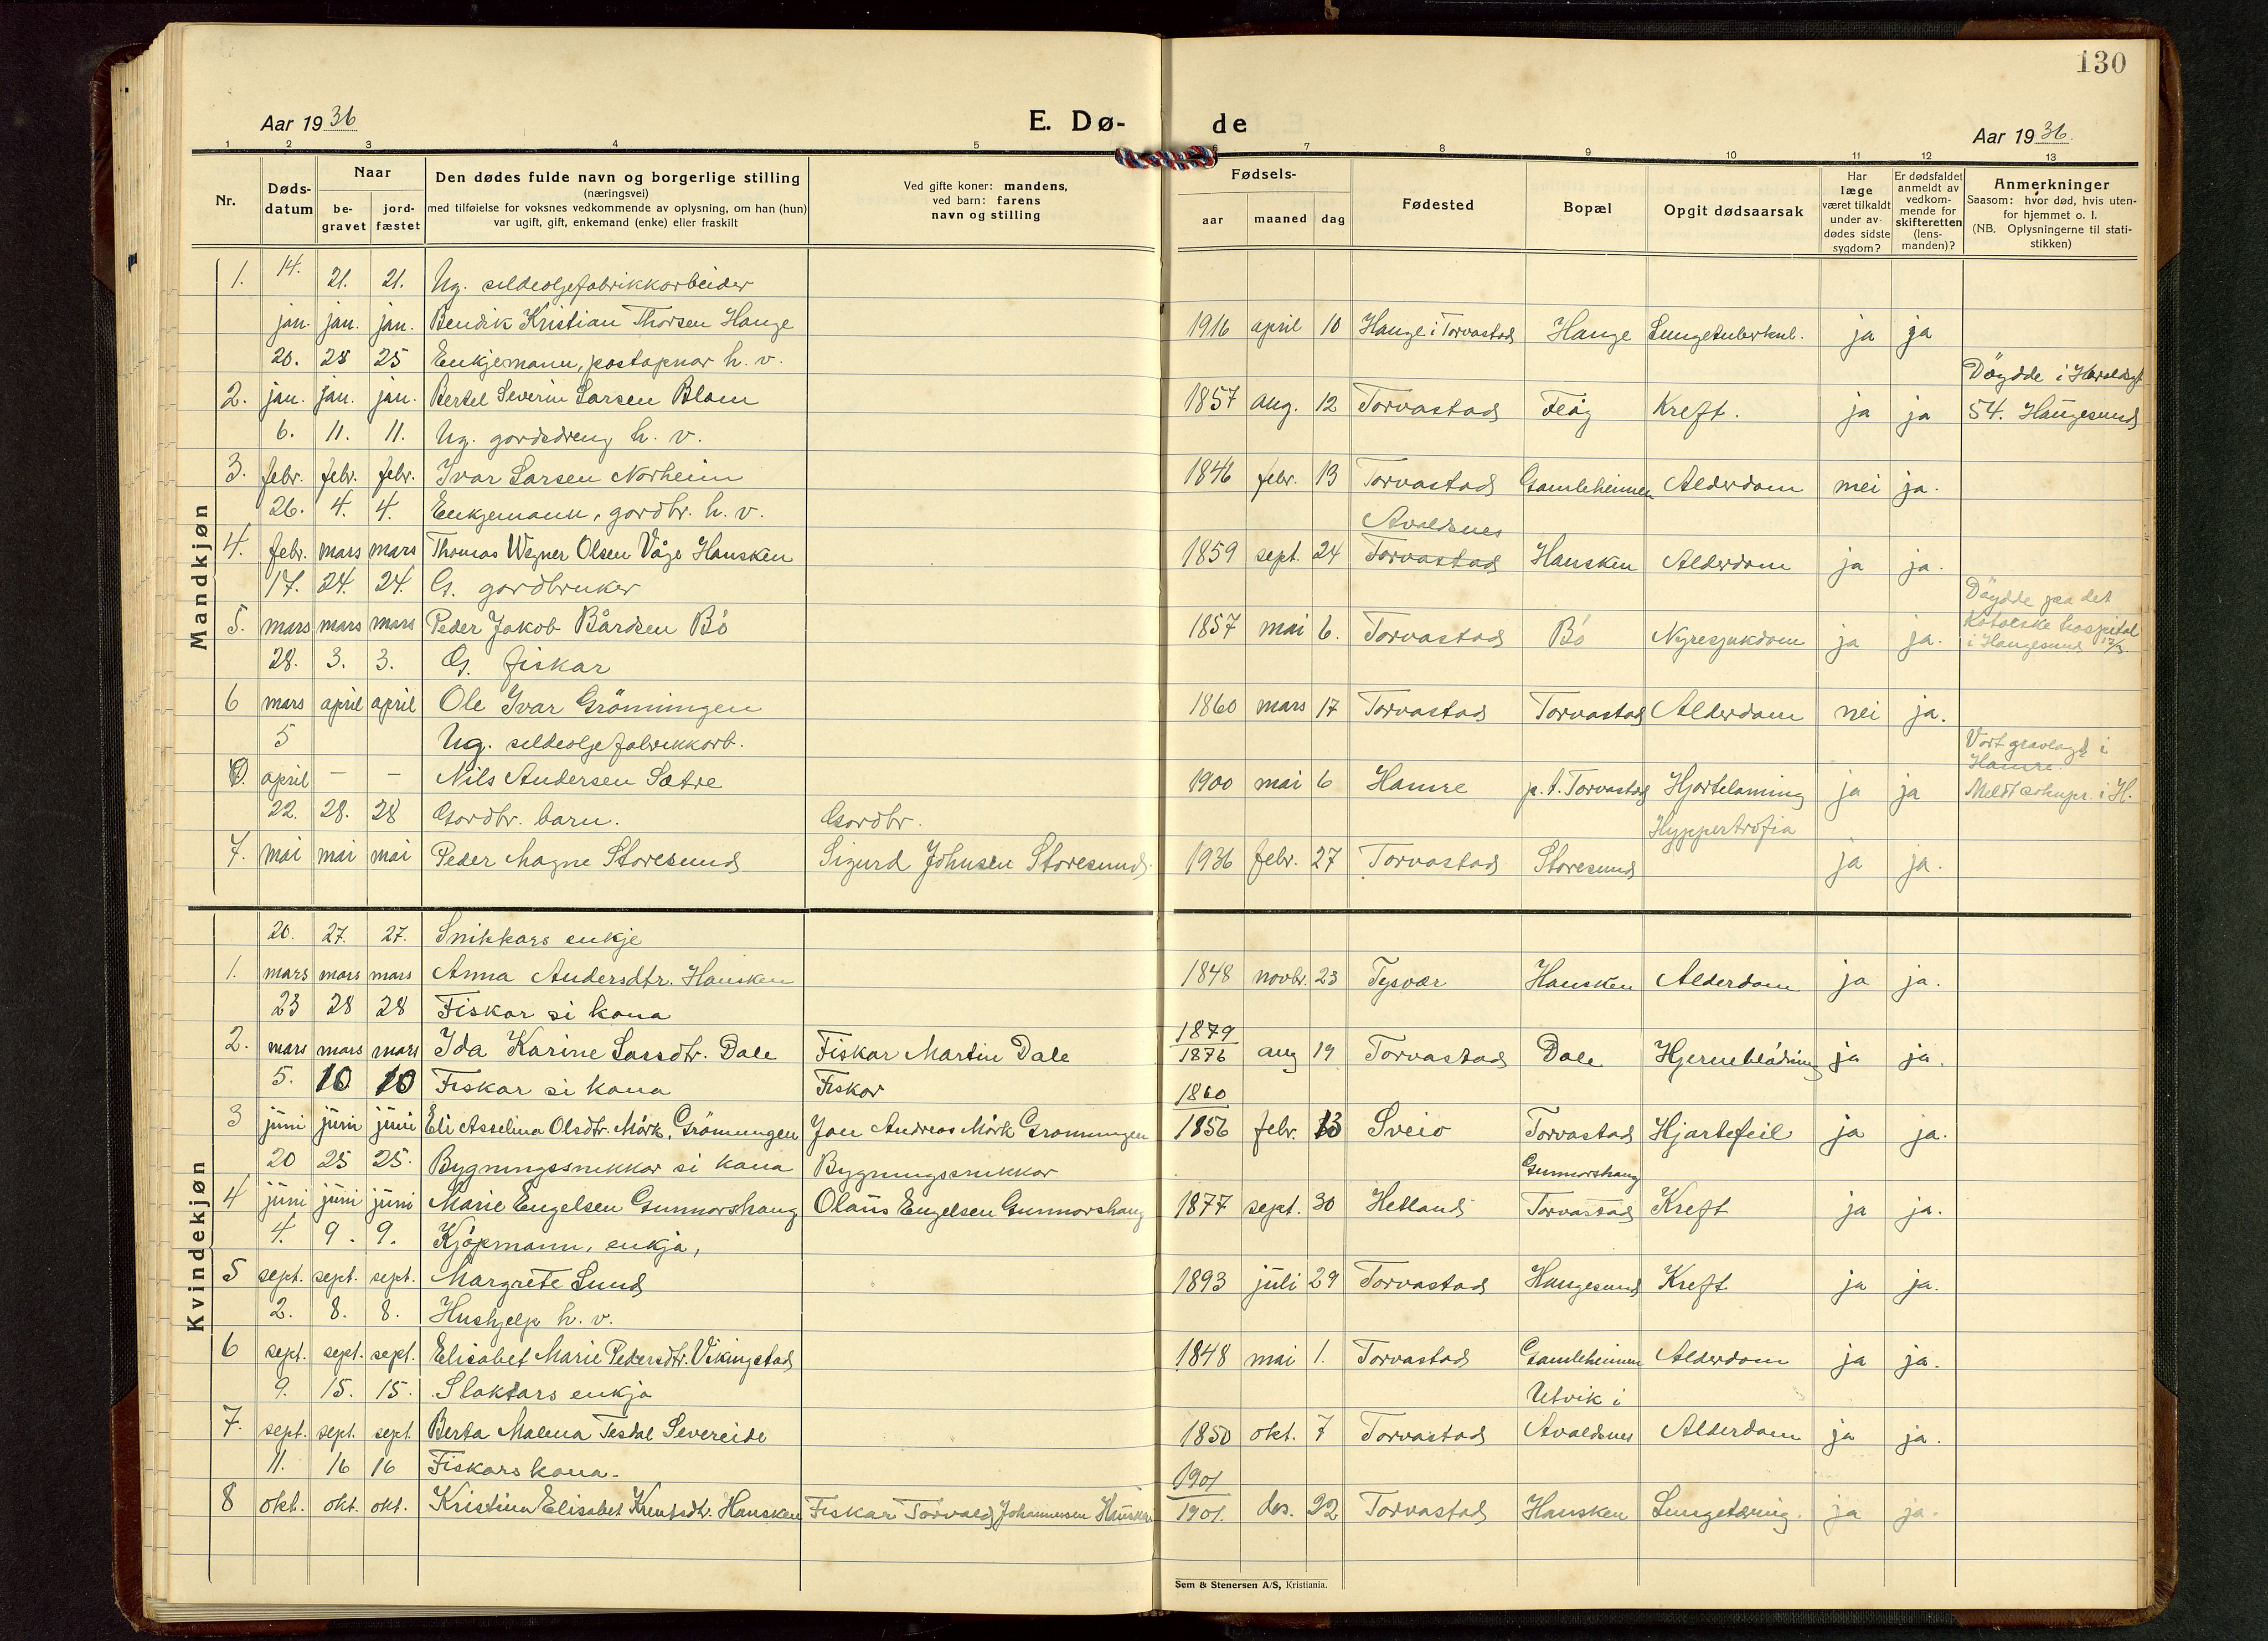 130
Aar 1936
E. Dø-
de
Aar 1936.
1 2 3 4 5 6 7 8 9 10 11 12 13
Nr.
Døds-
datum
Naar
be-
gravet
jord-
fæstet
Den dødes fulde navn og borgerlige stilling
(næringsvei)
med tilføielse for voksnes vedkommende av oplysning, om han (hun)
var ugift, gift, enkemand (enke) eller fraskilt
Ved gifte koner: mandens,
ved barn: farens
navn og stilling
Fødsels-
aar maaned dag
Fødested
Bopæl
Opgit dødsaarsak
Har
læge
været tilkaldt
under av-
dødes sidste
sygdom?
Er dødsfaldet
anmeldt av
vedkom-
mende for
skifteretten
(lens-
manden)?
Anmerkninger
Saasom: hvor død, hvis uten-
for hjemmet o. l.
(NB. Oplysningerne til stati-
stikken)
Mandkjøn
1. 14. 21. 21. Ug. sildeoljefabrikkarbeider
jan. jan. jan. Bendik Kristian Thorsen Hauge 1916 april 10 Hauge i Torvastad Hauge Lungetuberkul. ja ja
20. 25 25 Enkjemann, postapnar h. v. Döydde i Haraldsgt
2. jan. jan. jan. Bertel Severin Larsen Blom 1857 aug. 12 Torvastad Feøy Kreft. ja ja 54. Haugesund
6. 11. 11. Ug. gardsdreng h. v.
3. febr. febr. febr. Ivar Larsen Norheim 1846 febr. 13 Torvastad Gamleheimen Alderdom nei ja.
26. 4. 4. Enkjemann, gardbr. h. v. Avaldsnes
4. febr. mars mars Thomas Wegner Olsen Våge Hausken 1859 sept. 24 Torvastad Hausken Alderdom ja ja.
17. 24. 24. G. gardbruker Döydde paa det
5. mars mars mars Peder Jakob Bårdsen Bö 1857 mai 6. Torvastad Bö Nyresjukdom ja ja. Katolske hospital
i Haugesund 17/3.
28. 3. 3. G. fiskar
6 mars april april Ole Ivar Grönningen 1860 mars 17 Torvastad Torvastad Alderdom nei ja.
5 Ug. sildeoljefabrikkarb. Vart gravlagd i
Hamre.
april — — Nils Andersen Sætre 1900 mai 6 Hamre p. t. Torvastad Hjartelaming ja ja Meldt soknepr. i H.
22. 28. 28 Gardbr. barn. Gardbr. Hyppertrofia
7. mai mai mai Peder Magne Storesund Sigurd Johnsen Storesund. 1936 febr. 27 Torvastad Storesund ja ja.
Kvindekjøn
20. 27. 27. Snikkars enkje
1. mars mars mars Anna Andersdtr. Hausken 1848 novbr. 23 Tysvær Hausken Alderdom ja ja.
23 28 28 Fiskar si kona 1879
2. mars mars mars Ida Karine Larsdtr. Dale Fiskar Martin Dale 1876 aug 19 Torvastad Dale Hjerneblödning ja ja.
5. 10 10 Fiskar si kona Fiskar 1860
3 juni juni juni Eli Asselina Olsdtr. Mörk, Grönningen Jon Andreas Mörk Grönningen 1856 febr. 13 Sveio Torvastad Hjartefeil ja ja.
20 25 25. Bygningssnikkar si kona Bygningssnikkar Gunnarshaug
4 juni juni juni Marie Engelsen Gunnarshaug Olaus Engelsen Gunnarshaug 1877 sept. 30 Hetland Torvastad Kreft ja ja.
4. 9. 9. Kjöpmann, enkja,
5 sept. sept. sept. Margrete Lund 1893 juli 29 Torvastad Haugesund Kreft ja ja.
2. 8. 8. Hushjelp h. v.
6 sept. sept. sept. Elisabet Marie Pedersdtr. Vikingstad 1848 mai 1. Torvastad Gamleheimen Alderdom ja ja.
9. 15. 15. Slaktars enkja Utvik i
7. sept. sept. sept. Berta Malena Tesdal Severeide 1850 okt. 7 Torvastad Avaldsnes Alderdom ja ja.
11. 16 16 Fiskars kona. 1901
8 okt. okt. okt. Kristina Elisabet Knutsdtr. Hausken Fiskar Torvald Johannessen Hausken 1901. des. 22 Torvastad Hausken Lungetæring. ja ja.
Sem & Stenersen A/S, Kristiania.